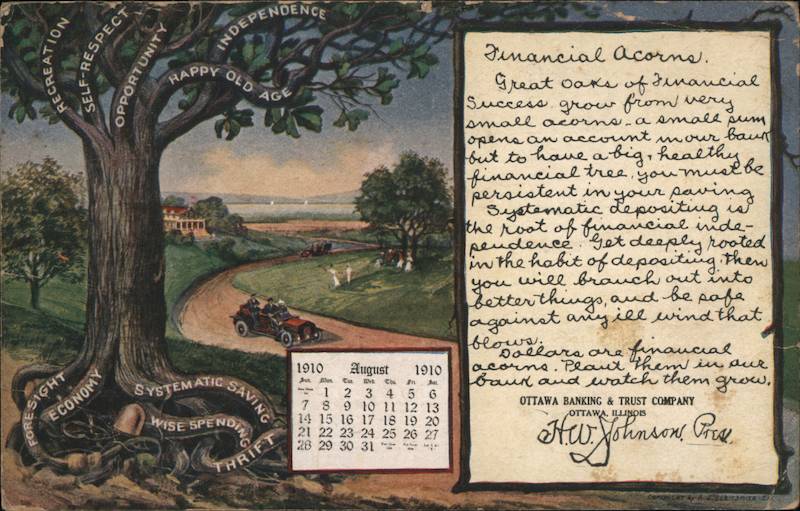 RECREATION
SELF-RESPECT
OPPORTUNITY
HAPPY OLD AGE
INDEPENDENCE
FORESIGHT
ECONOMY
SYSTEMATIC SAVING
WISE SPENDING
THRIFT
1910 August 1910
Sun. Mon. Tue. Wed. Thu. Fri. Sat.
1 2 3 4 5 6
7 8 9 10 11 12 13
14 15 16 17 18 19 20
21 22 23 24 25 26 27
28 29 30 31
Financial Acorns.
Great oaks of Financial
Success grow from very
small acorns - a small sum
opens an account in our bank
but to have a big, healthy
financial tree, you must be
persistent in your saving
Systematic depositing is
the root of financial inde-
pendence. Get deeply rooted
in the habit of depositing then
you will branch out into
better things, and be safe
against any ill wind that
blows.
Dollars are financial
acorns. Plant them in our
bank and watch them grow.
OTTAWA BANKING & TRUST COMPANY
OTTAWA, ILLINOIS
H.W. Johnson, Pres.
COPYRIGHT by